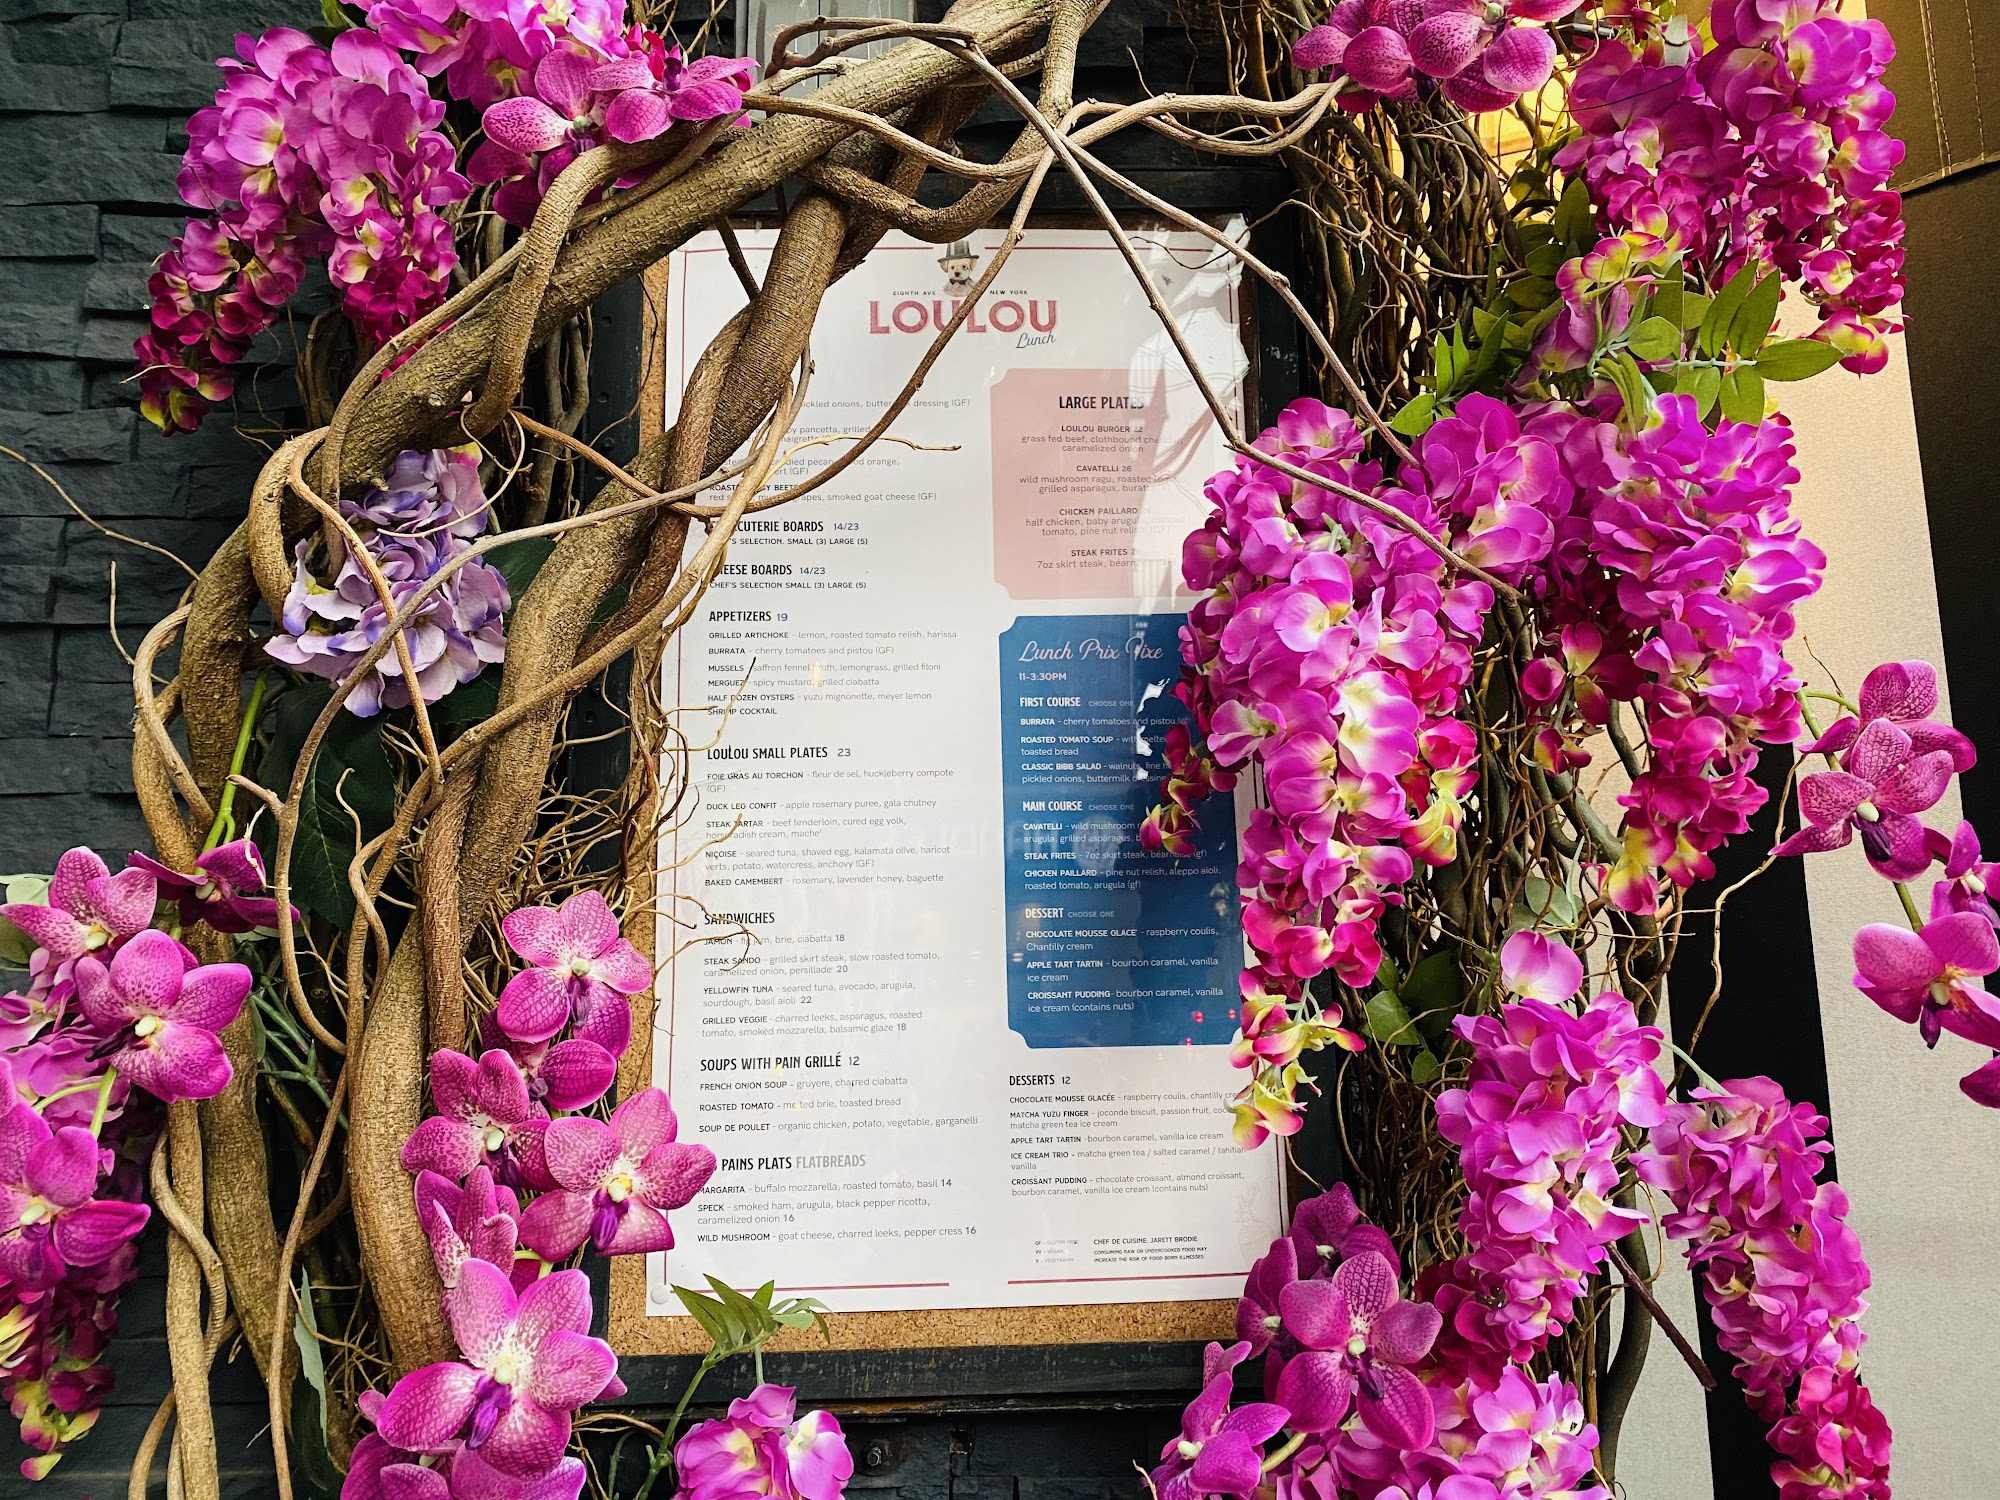 EIGHTH AVE NEW YORK
LOULOU
Lunch
pickled onions, dressing (GF)
pancetta, grilled
pecan, orange,
(GF)
BEETS
grapes, smoked goat cheese (GF)
BOARDS 14/23
SELECTION, SMALL (3) LARGE (5)
BOARDS 14/23
CHEF'S SELECTION SMALL (3) LARGE (5)
APPETIZERS 19
GRILLED ARTICHOKE - lemon, roasted tomato relish, harissa
BURRATA - cherry tomatoes and pistou (GF)
MUSSELS - saffron fennel broth, lemongrass, grilled filoni
MERGUEZ - spicy mustard, grilled ciabatta
HALF DOZEN OYSTERS - yuzu mignonette, meyer lemon
SHRIMP COCKTAIL
LOULOU SMALL PLATES 23
FOIE GRAS AU TORCHON - fleur de sel, huckleberry compote
(GF)
DUCK LEG CONFIT - apple rosemary puree, gala chutney
STEAK TARTAR - beef tenderloin, cured egg yolk,
horseradish cream, mache'
NIÇOISE - seared tuna, shaved egg, kalamata olive, haricot
verts, potato, watercress, anchovy (GF)
BAKED CAMEMBERT - rosemary, lavender honey, baguette
SANDWICHES
JAMON - fig jam, brie, ciabatta 18
STEAK SANDO - grilled skirt steak, slow roasted tomato,
caramelized onion, persillade 20
YELLOWFIN TUNA - seared tuna, avocado, arugula,
sourdough, basil aioli 22
GRILLED VEGGIE - charred leeks, asparagus, roasted
tomato, smoked mozzarella, balsamic glaze 18
SOUPS WITH PAIN GRILLÉ 12
FRENCH ONION SOUP - gruyere, charred ciabatta
ROASTED TOMATO - melted brie, toasted bread
SOUP DE POULET - organic chicken, potato, vegetable, garganelli
PAINS PLATS FLATBREADS
MARGARITA - buffalo mozzarella, roasted tomato, basil 14
SPECK - smoked ham, arugula, black pepper ricotta,
caramelized onion 16
WILD MUSHROOM - goat cheese, charred leeks, pepper cress 16
LARGE PLATES
LOULOU BURGER 22
grass fed beef, clothbound cheddar,
caramelized onion
CAVATELLI 26
wild mushroom ragu, roasted tomato,
grilled asparagus, burrata
CHICKEN PAILLARD
half chicken, baby arugula, roasted
tomato, pine nut relish (GF)
STEAK FRITES
7oz skirt steak,
Lunch Prix Fixe
11-3:30PM
FIRST COURSE CHOOSE ONE
BURRATA - cherry tomatoes and pistou
ROASTED TOMATO SOUP - with melted
toasted bread
CLASSIC BIBB SALAD - walnuts, fine
pickled onions, buttermilk dressing
MAIN COURSE CHOOSE ONE
CAVATELLI - wild mushroom
arugula, grilled asparagus,
STEAK FRITES - 7oz skirt steak, béarnaise (gf)
CHICKEN PAILLARD - pine nut relish, aleppo aioli,
roasted tomato, arugula (gf)
DESSERT CHOOSE ONE
CHOCOLATE MOUSSE GLACE' - raspberry coulis,
Chantilly cream
APPLE TART TARTIN - bourbon caramel, vanilla
ice cream
CROISSANT PUDDING- bourbon caramel, vanilla
ice cream (contains nuts)
DESSERTS 12
CHOCOLATE MOUSSE GLACÉE - raspberry coulis, chantilly
MATCHA YUZU FINGER - joconde biscuit, passion fruit,
matcha green tea ice cream
APPLE TART TARTIN -bourbon caramel, vanilla ice cream
ICE CREAM TRIO - matcha green tea / salted caramel / tahitian
vanilla
CROISSANT PUDDING - chocolate croissant, almond croissant,
bourbon caramel, vanilla ice cream (contains nuts)
GF - GLUTEN FREE
VV - VEGAN
V - VEGETARIAN
CHEF DE CUISINE: JARETT BRODIE
CONSUMING RAW OR UNDERCOOKED FOOD MAY
INCREASE THE RISK OF FOOD BORN ILLNESSES